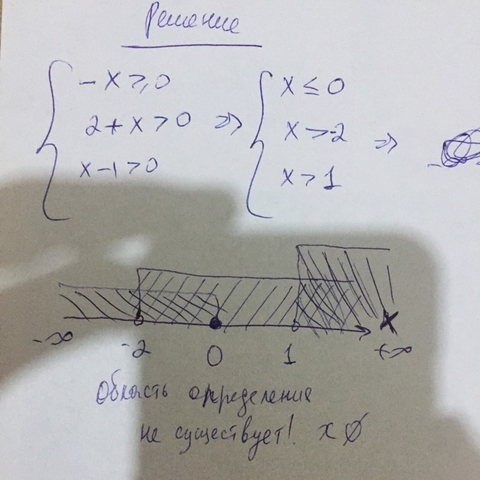 Решение
-x ≥ 0
2+x > 0
x-1 > 0
⇒
x ≤ 0
x > -2
x > 1
⇒
-∞ -2 0 1 +∞
x
Область определения
не существует! x ∅